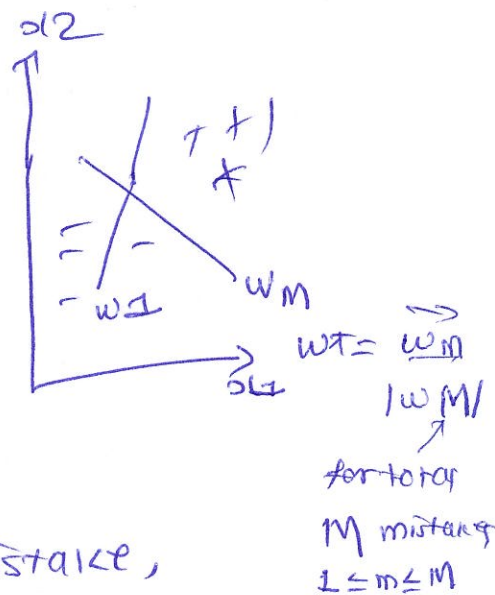 x2
+ + )
+
- -
- -
-
w1
wM
x1
wT = wM
|wM|
for total
M mistakes
1 ≤ m ≤ M
stake,